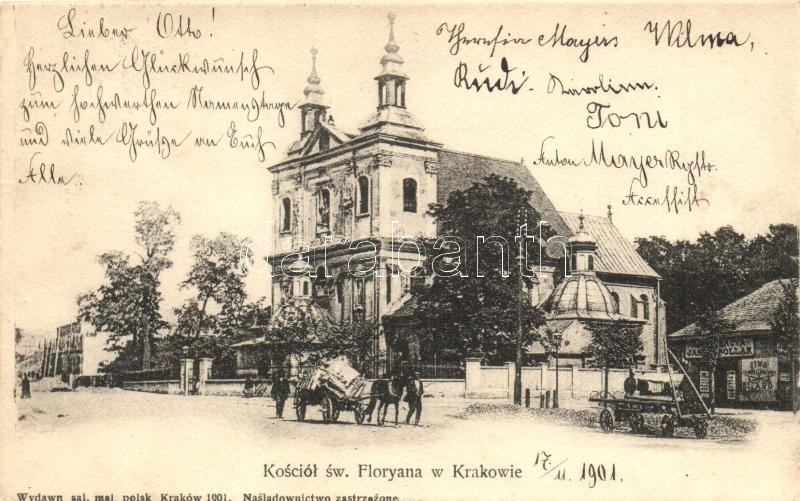 Lieber Otto!
Herzlichen Glückwunsch
zum hochwerthen Namenstage
und viele Grüße an Euch
Alle.
Theresia Mayer, Wilma,
Rudi. Karoline.
Toni
Anton Mayer
Accessist
darabanth
Kościół św. Floryana w Krakowie 17/11. 1901.
Wydawn. sal. mal. polsk. Kraków 1901. Naśladownictwo zastrzeżone.